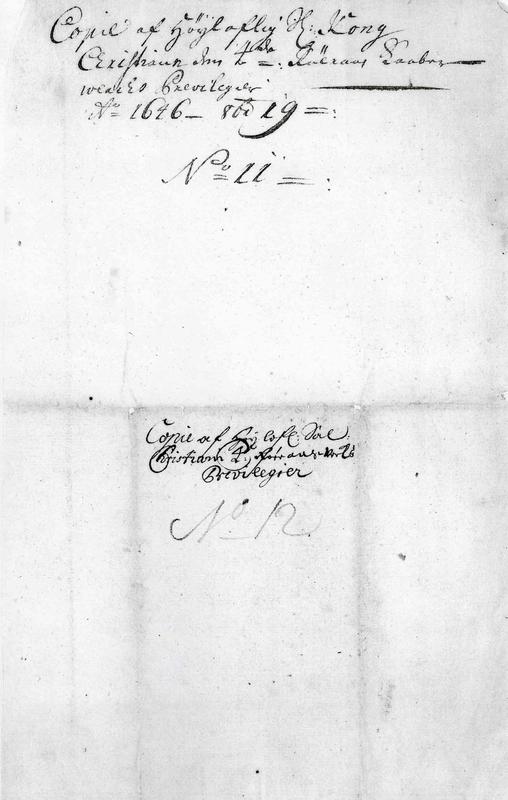 Copie af Höÿlaflig H: Kong
Christian den 4de =. Röeraas Kaaber
wercks Prewilegier
Ao 1646 – 8br 19 =:
No 11 =:
Copie af Höÿ lofl: Sal:
Christiani 4ti Röraas Verks
Previlegier
No 12